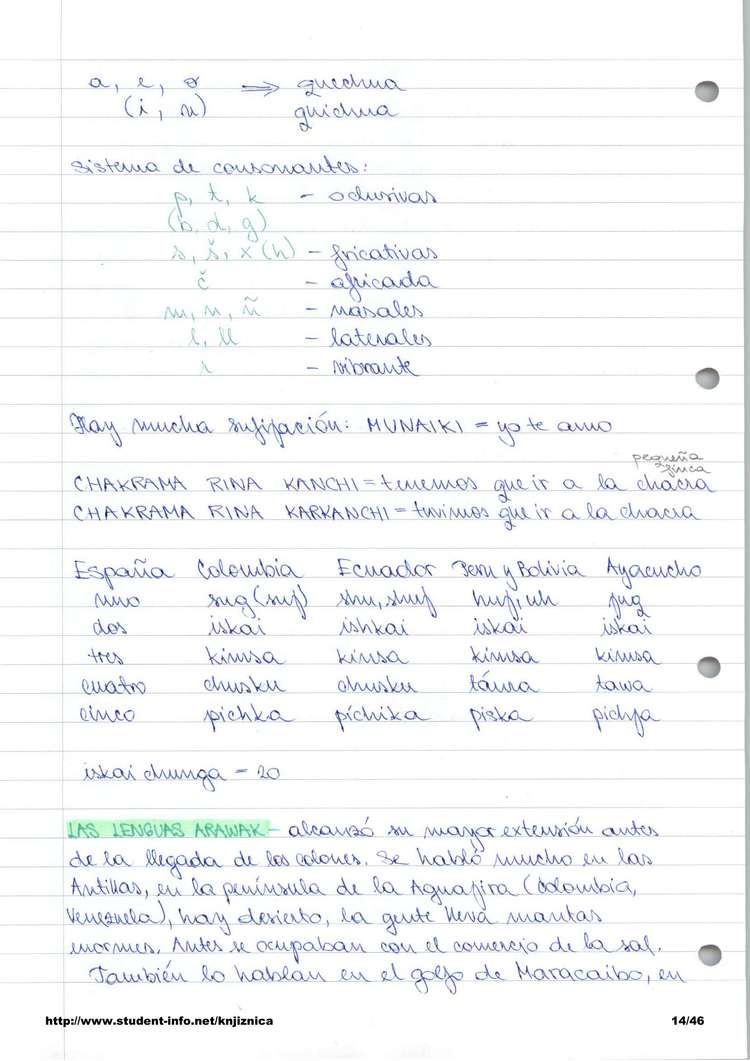 a, e, o ⇒ quechua
(i, u) quichua
Sistema de consonantes:
p, t, k – oclusivas
(b, d, g)
s, š, x (h) – fricativas
č – africada
m, n, ñ – nasales
l, ll – laterales
r – vibrante
Hay mucha sufijación: MUNAIKI = yo te amo
pequeña
finca
CHAKRAMA RINA KANCHI = tenemos que ir a la chacra
CHAKRAMA RINA KARKANCHI = tuvimos que ir a la chacra
España Colombia Ecuador Peru y Bolivia Ayacucho
uno sug (suj) shu, shuj huj, uh jug
dos iskai ishkai iskai iskai
tres kimsa kinsa kimsa kimsa
cuatro chusku chusku táwa tawa
cinco pichka píchika piska pichja
iskai chunga = 20
LAS LENGUAS ARAWAK – alcanzó su mayor extensión antes
de la llegada de los colones. Se habló mucho en las
Antillas, en la península de la Aguajira (Colombia,
Venezuela), hay desierto, la gente lleva mantas
enormes. Antes se ocupaban con el comercio de la sal.
También lo hablan en el golfo de Maracaibo, en
http://www.student-info.net/knjiznica 14/46